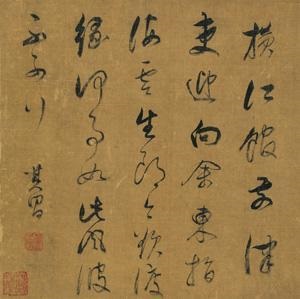 橫江館前津
吏迎向余東指
海雲生郎今欲渡
緣何事如此風波
不可行 其昌